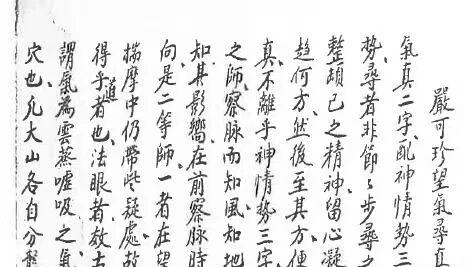 嚴可珍望氣尋真
氣真二字、配神情勢三
勢、尋者非節々步尋之
整頓已之精神、留心凝
趨何方、然後至其方、便
真、不離乎神情勢三字
之師、察脉而知風、知地
知其影嚮、在前察脉時
向是二等師、一者在望
揣摩中仍帶些疑處、故
得乎道者也、法眼者效古
謂氣為雲蒸噓吸之氣
穴也、凡大山各自分